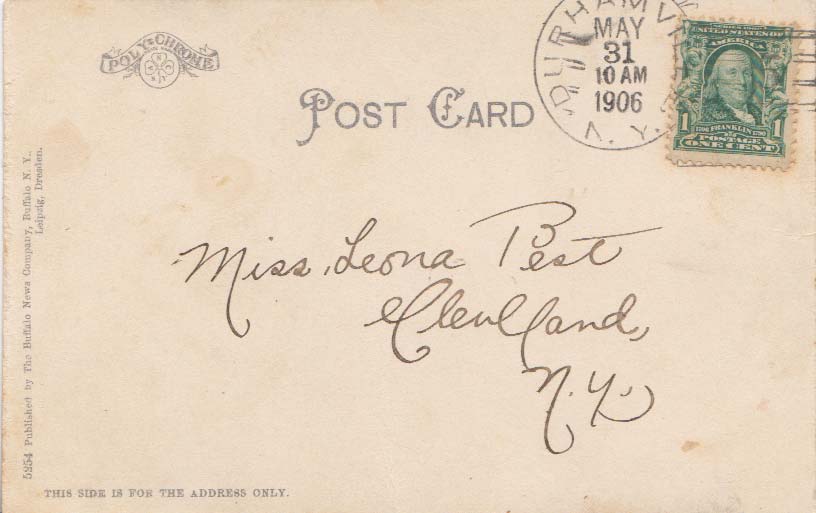 POLY-CHROME
POST CARD
DURHAMVILLE
MAY
31
10 AM
1906
N. Y.
SERIES 1902
UNITED STATES OF
AMERICA
1 1706 FRANKLIN 1790 1
POSTAGE
ONE CENT
Miss. Leona Pest
Clevlland,
N.Y.
5254 Published by The Buffalo News Company, Buffalo N. Y.,
Leipzig, Dresden.
THIS SIDE IS FOR THE ADDRESS ONLY.